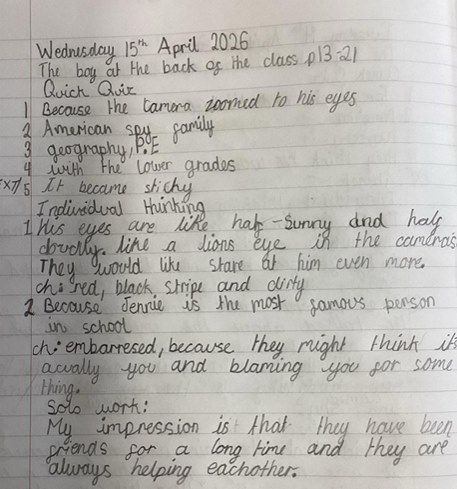 Wednesday 15th April 2026
The boy at the back of the class p13-21
Quick Quiz
1 Because the Camera zoomed to his eyes
2 American spy family
3 geography, P.E
4 with the lower grades
EXT/5 It became stichy
Individual thinking
1. His eyes are like half-sunny and half
cloudly. like a lions eye in the cameras
They would like stare at him even more.
ch: red, black stripe and dirty
2 Because Jennie is the most famous person
in school
ch: embarresed, because they might think its
acually you and blaming you for some
thing.
Solo work:
My impression is that they have been
friends for a long time and they are
always helping eachother.